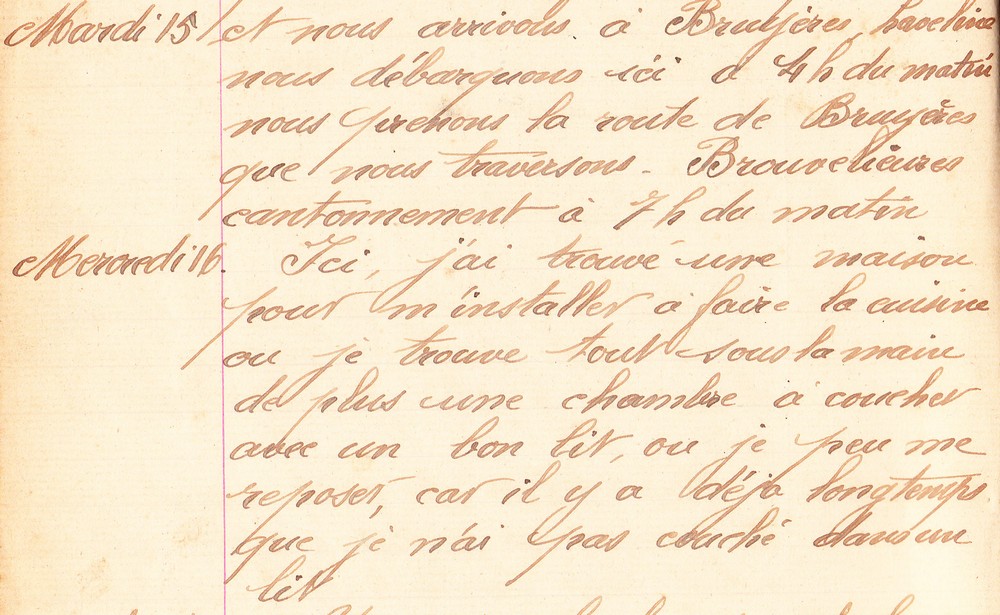 Mardi 15 et nous arrivons à Bruyères, Laveline
nous débarquons ici a 4 h du matin
nous prenons la route de Bruyères
que nous traversons. Brouvelieures
cantonnement à 7 h du matin
Mercredi 16. Ici, j'ai trouvé une maison
pour m'installer a faire la cuisine
ou je trouve tout sous la main
de plus une chambre a coucher
avec un bon lit, ou je peu me
reposer, car il y a déja longtemps
que je n'ai pas couché dans un
lit